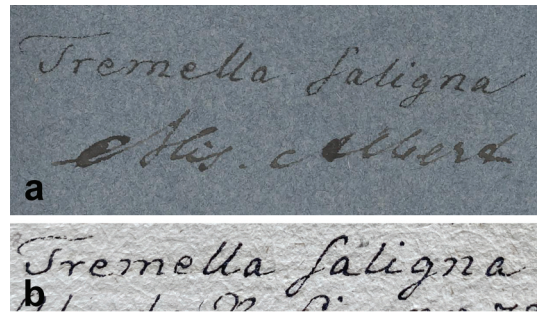 Tremella saligna
Mis. Albert
a
Tremella saligna
b